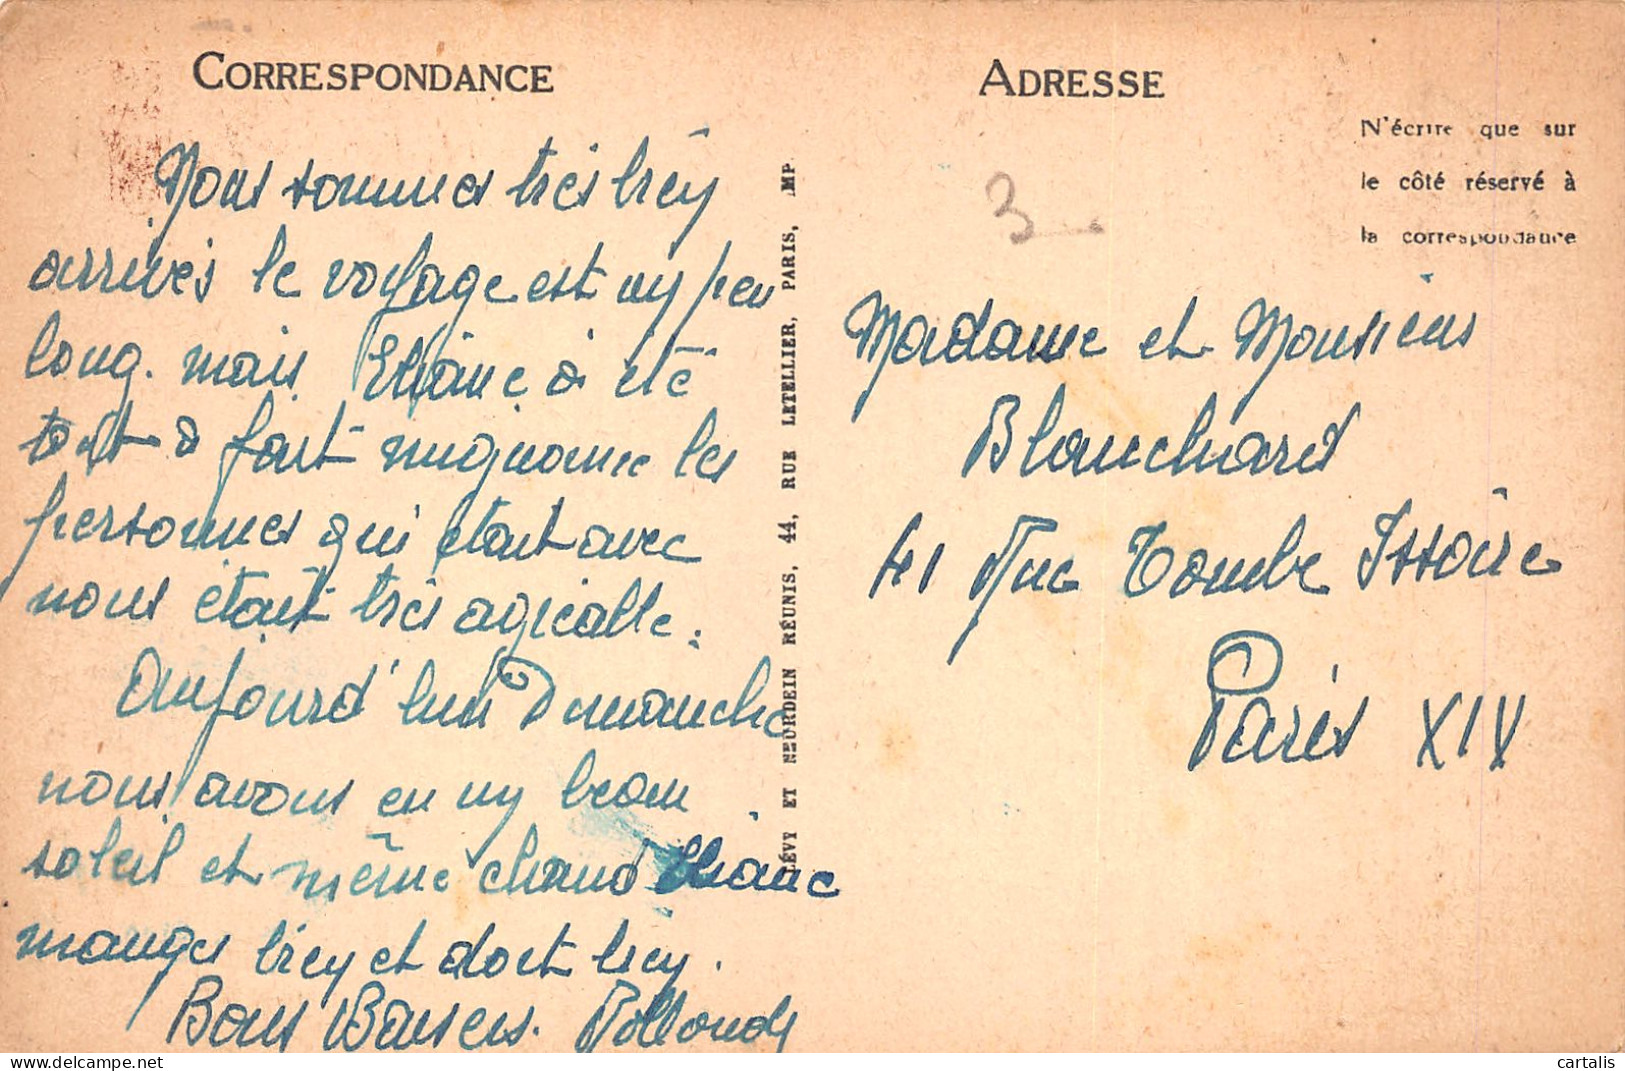 CORRESPONDANCE
Nous sommes très bien
arrivés le voyage est un peu
long. mais Eliane à été
tout à fait mignonne les
personnes qui était avec
nous était très agréable.
Aujourd'hui Dimanche
nous avons eu un beau
soleil et même chaud Eliane
mange bien et dort bien.
Bons Baisers.
LÉVY ET NEURDEIN RÉUNIS, 44, RUE LETELLIER, PARIS, IMP
ADRESSE
N'écrire que sur
le côté réservé à
la correspondance
3
Madame et Monsieur
Blanchard
41 Rue Tombe Issoire
Paris XIV
cartalis